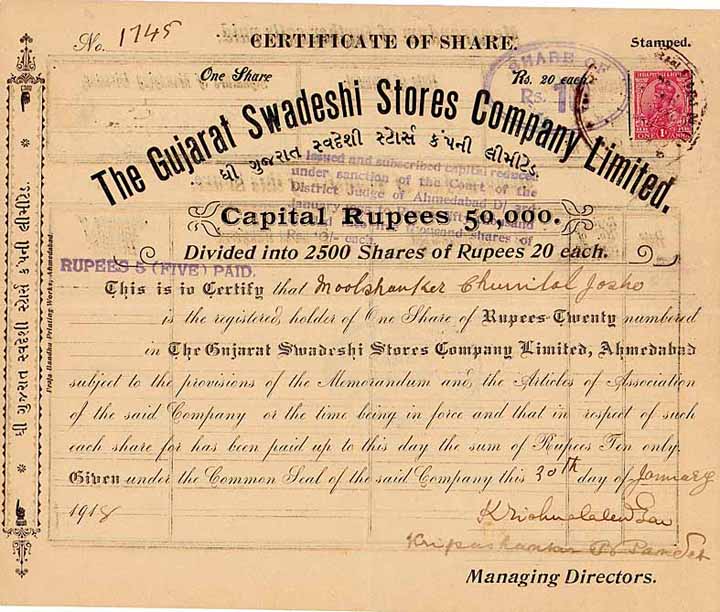 No. 1745
CERTIFICATE OF SHARE.
Stamped.
One Share
Rs. 20 each.
SHARE OF
Rs. 10
The Gujarat Swadeshi Stores Company Limited.
ધી ગુજરાત સ્વદેશી સ્ટોર્સ કંપની લીમીટેડ.
Issued and subscribed capital reduced
under sanction of the Court of the
District Judge of Ahmedabad
January
thousand shares of
each.
Capital Rupees 50,000.
Divided into 2500 Shares of Rupees 20 each.
RUPEES 5 (FIVE) PAID.
This is to Certify that Moolshanker Chunilal Josho
is the registered holder of One Share of Rupees Twenty numbered
in The Gujarat Swadeshi Stores Company Limited, Ahmedabad
subject to the provisions of the Memorandum and the Articles of Association
of the said Company or the time being in force and that in respect of such
each share for has been paid up to this day the sum of Rupees Ten only.
Given under the Common Seal of the said Company this 30th day of January
1918
Kripashanker P. Pandit
Managing Directors.
ધી ગુજરાત સ્વદેશી સ્ટોર્સ કંપની લીમીટેડ
Praja Bandhu Printing Works, Ahmedabad.